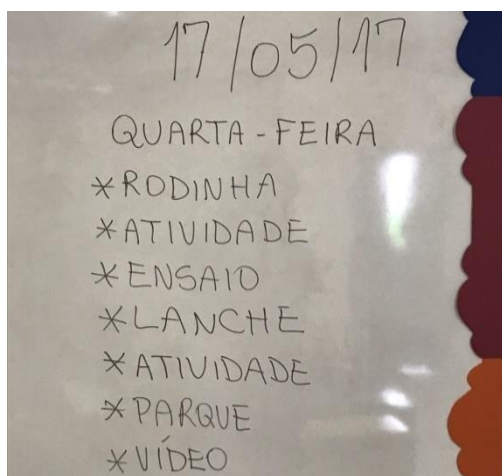 17/05/17
QUARTA-FEIRA
*RODINHA
*ATIVIDADE
*ENSAIO
*LANCHE
*ATIVIDADE
*PARQUE
*VÍDEO